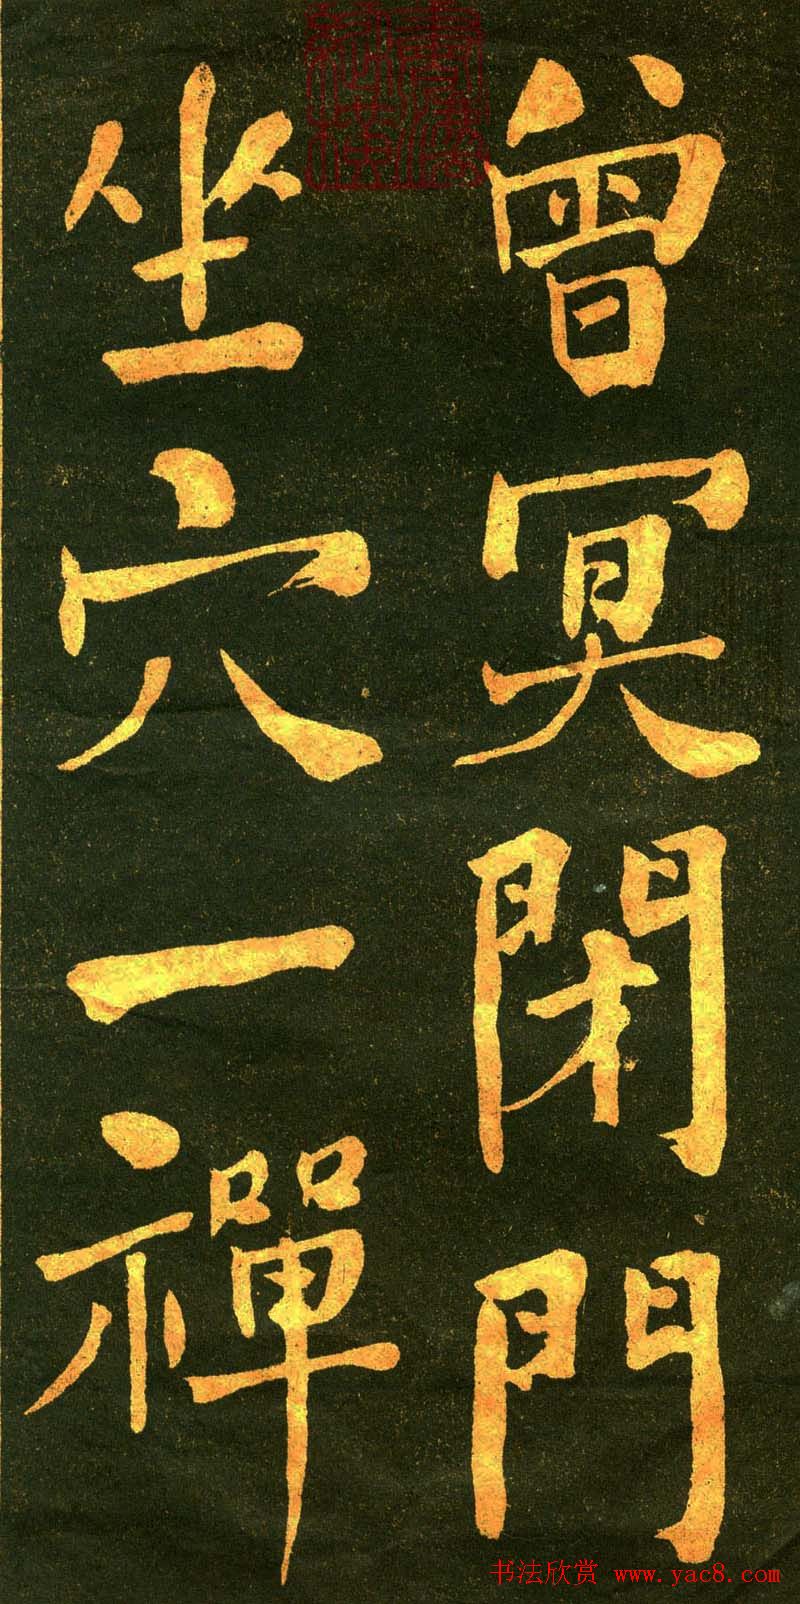 曾冥閉門
坐穴一禪
书法欣赏 www.yac8.com